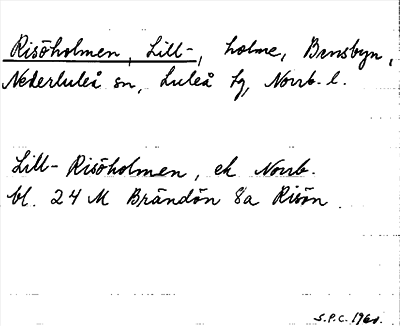 Risöholmen, Lill-, holme, Bensbyn,
Nederluleå sn, Luleå tg, Norrb. l.
Lill-Risöholmen, ek Norrb.
bl. 24 M Brändön 8a Risön.
S.P.C.